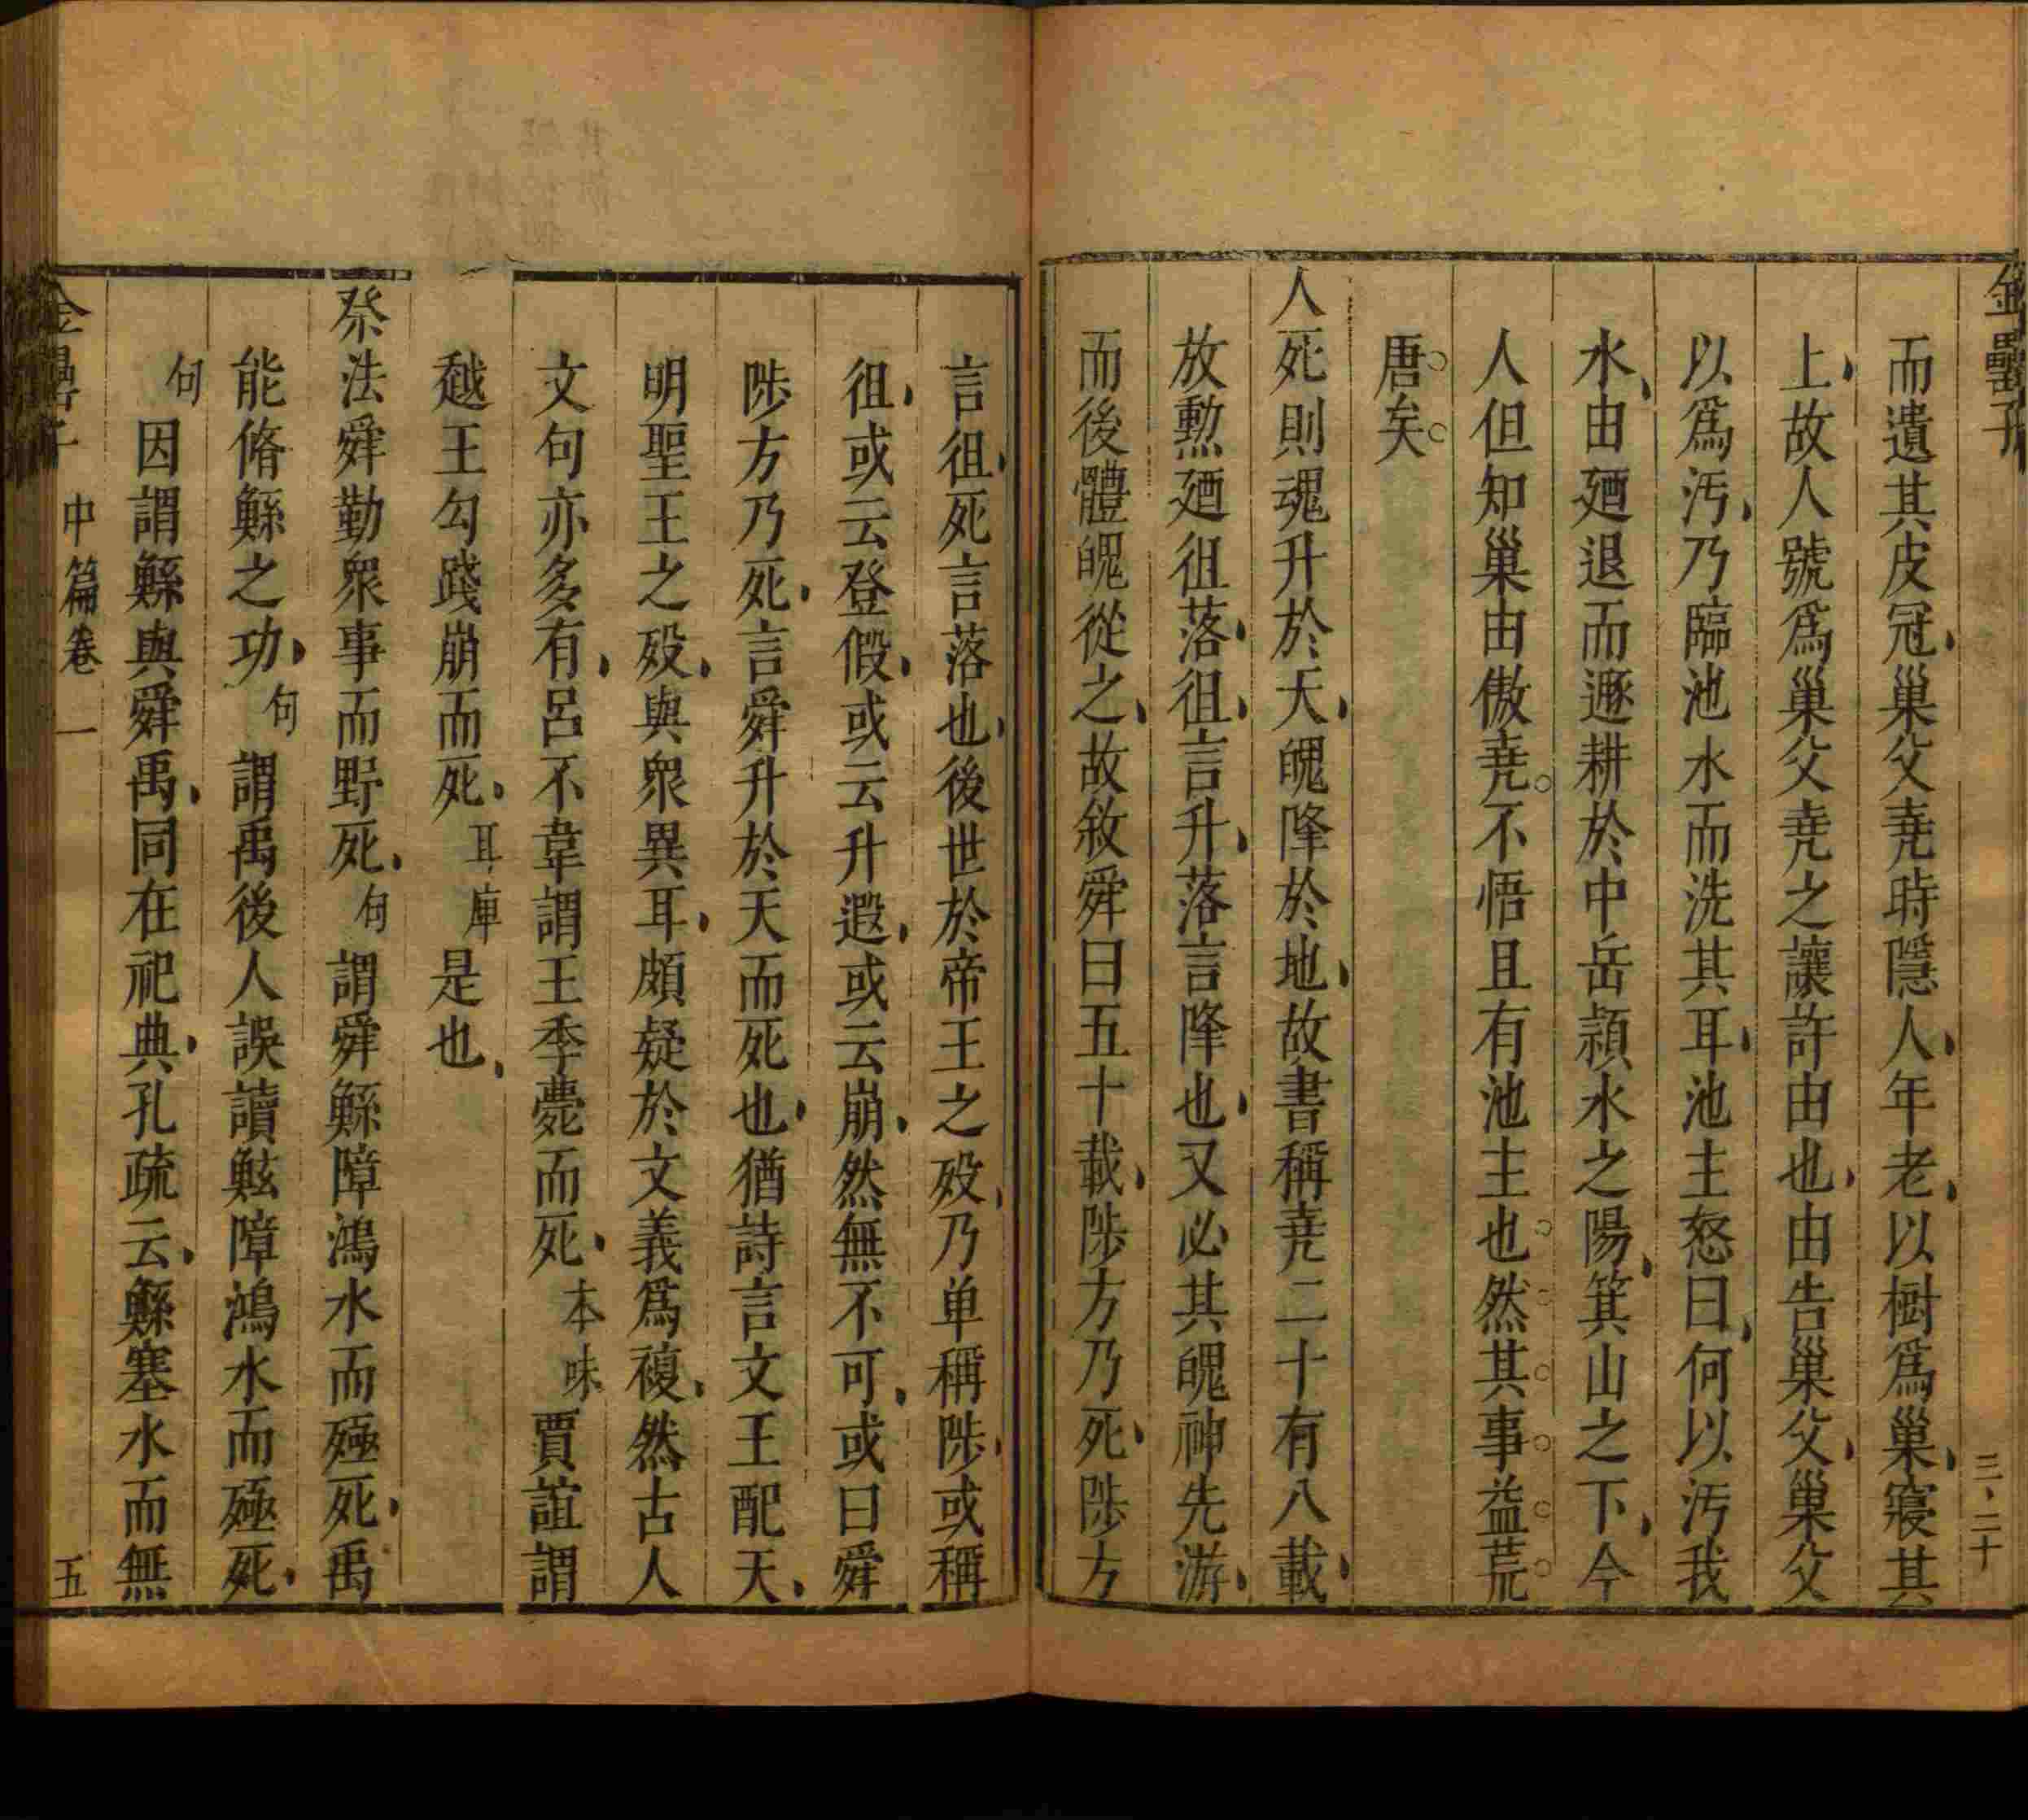 金罍子
三、二十
而遺其皮冠、巢父尭時隱人、年老、以樹爲巢、寢其
上、故人號爲巢父尭之讓許由也、由告巢父、巢父
以爲汚、乃臨池水而洗其耳、池主怒曰、何以汚我
水、由廼退而遯耕於中岳頴水之陽、箕山之下、今
人但知巢由傲尭不悟且有池主也然其事益荒
唐矣
人死則魂升於天、魄降於地、故書稱尭二十有八載、
放勲廼徂落、徂、言升、落言降也、又必其魄神先游、
而後體魄從之、故敘舜曰五十載、陟方乃死、陟方
言徂、死言落也、後世於帝王之歿、乃单稱陟、或稱
徂、或云登假、或云升遐、或云崩、然無不可、或曰舜
陟方乃死、言舜升於天而死也、猶詩言文王配天、
明聖王之歿、與衆異耳、頗疑於文義爲複、然古人
文句亦多有、呂不韋謂王季薨而死、本味賈誼謂
越王勾踐崩而死、耳庫是也、
祭法舜勤衆事而野死、句謂舜鯀障鴻水而殛死、禹
能脩鯀之功、句謂禹後人誤讀鮌障鴻水而殛死、
句因謂鯀與舜禹、同在祀典、孔疏云、鯀塞水而無
金罍子
中篇卷一
五